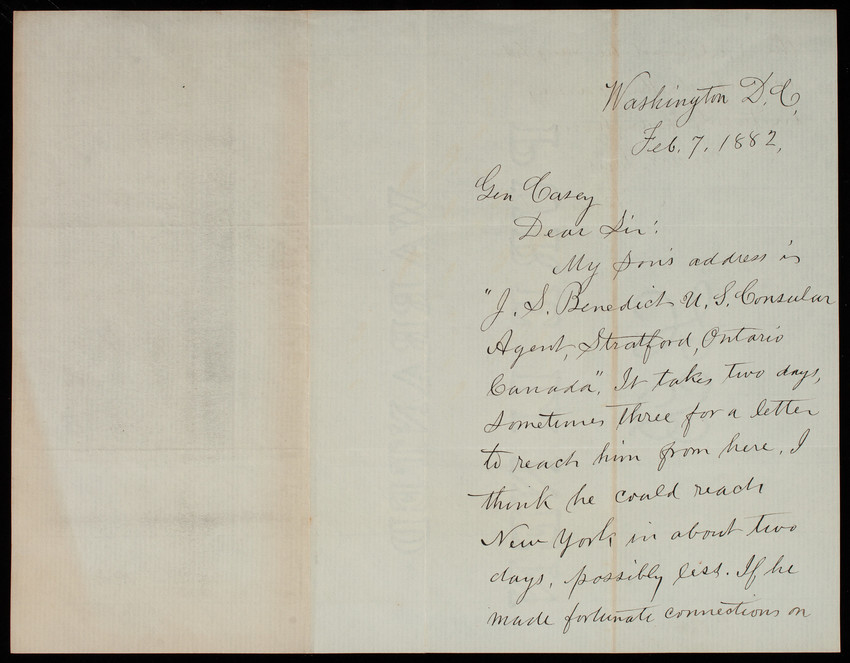 Washington D.C,
Feb. 7. 1882,
Gen Casey
Dear Sir:
My son's address is
"J. S. Benedict U. S. Consular
Agent, Stratford, Ontario
Canada". It takes two days,
sometimes three for a letter
to reach him from here. I
think he could reach
New York in about two
days, possibly less. If he
made fortunate connections on